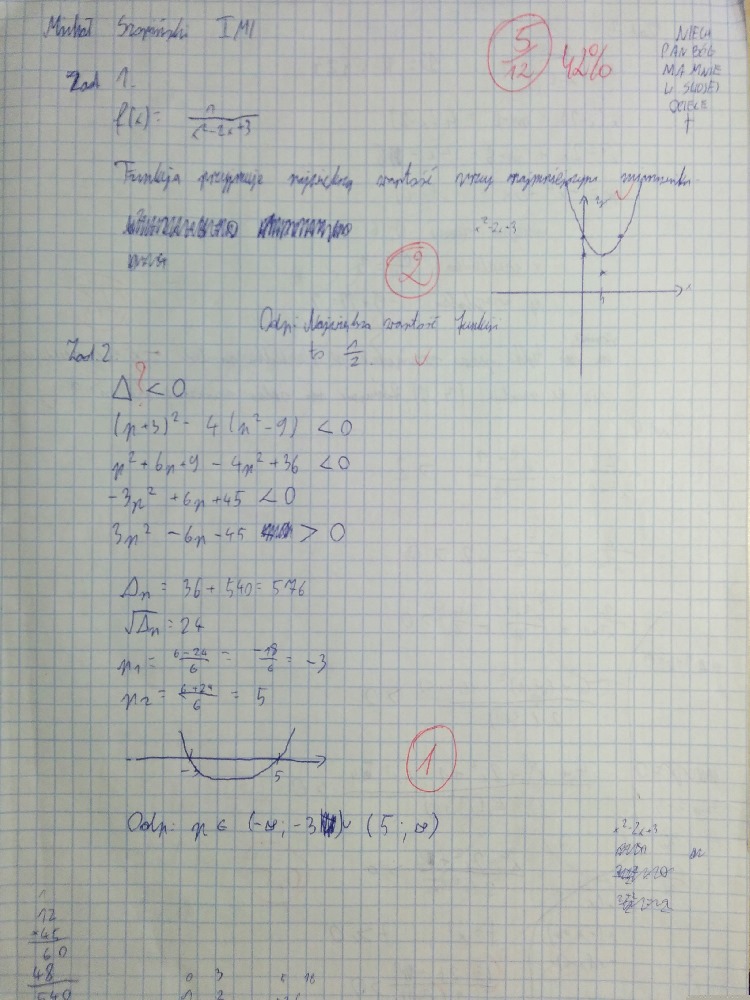 Michał I M1
5/12 42%
NIECH
PAN BÓG
MA MNIE
W SWOJEJ
OPIECE
†
Zad 1.
f(x) = 1/(x²-2x+3)
Funkcja przyjmuje największą wartość przy najmniejszym mianowniku.
y
x²-2x+3
1
2
Odp: Największa wartość funkcji
to 1/2.
Zad. 2
Δ ? < 0
(n+3)² - 4(n²-9) < 0
n² + 6n + 9 - 4n² + 36 < 0
-3n² + 6n + 45 < 0
3n² - 6n - 45 > 0
Δn = 36 + 540 = 576
√Δn = 24
n1 = (6-24)/6 = -18/6 = -3
n2 = (6+24)/6 = 5
-3 5
1
Odp: n ∈ (-∞; -3) ∪ (5; ∞)
x²-2x+3
1
12
×45
60
48
540
0 3
1 2